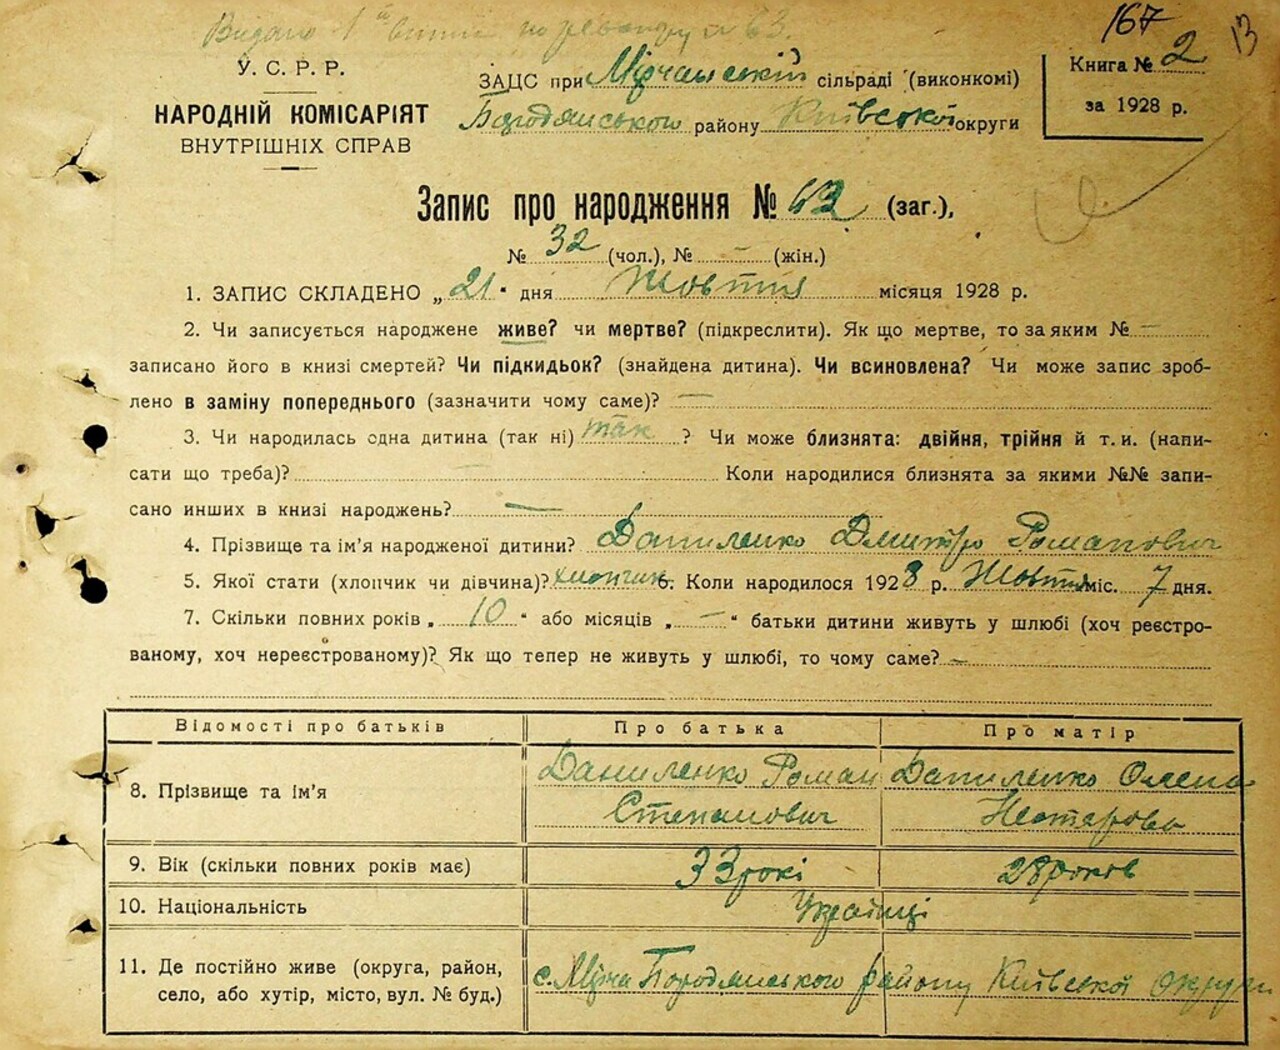 Видано 1 № 63.
167
13
У. С. Р. Р.
НАРОДНІЙ КОМІСАРІЯТ
ВНУТРІШНІХ СПРАВ
ЗАЦС при Мірчанській сільраді (виконкомі)
Бородянського району Київської округи
Книга № 2
за 1928 р.
Запис про народження № 63 (заг.),
№ 32 (чол.), № – (жін.)
1. ЗАПИС СКЛАДЕНО „ 21 " дня Жовтня місяця 1928 р.
2. Чи записується народжене живе? чи мертве? (підкреслити). Як що мертве, то за яким № –
записано його в книзі смертей? Чи підкидьок? (знайдена дитина). Чи всиновлена? Чи може запис зроб-
лено в заміну попереднього (зазначити чому саме)? –
3. Чи народилась одна дитина (так ні) так ? Чи може близнята: двійня, трійня й т. и. (напи-
сати що треба)? – Коли народилися близнята за якими №№ запи-
сано инших в книзі народжень? –
4. Прізвище та ім'я народженої дитини? Даниленко Дмитро Романович
5. Якої стати (хлопчик чи дівчина)? хлопчик 6. Коли народилося 1928 р. Жовтня міс. 7 дня.
7. Скільки повних років „ 10 " або місяців „ – " батьки дитини живуть у шлюбі (хоч реєстро-
ваному, хоч нереєстрованому)? Як що тепер не живуть у шлюбі, то чому саме? –
Відомості про батьків Про батька Про матір
8. Прізвище та ім'я Даниленко Роман Степанович Даниленко Олена Нестерова
9. Вік (скільки повних років має) 33 рокі 28 років
10. Національність Українці
11. Де постійно живе (округа, район,
село, або хутір, місто, вул. № буд.) с. Мірча Бородянського району Київської Округи